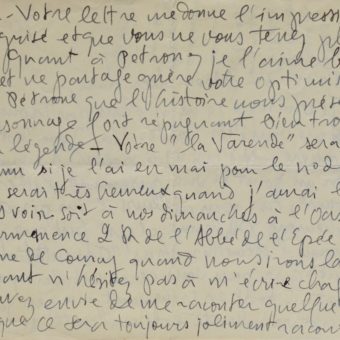 - Votre lettre me donne l'impressi
grise et que vous ne vous tenez p
quant à Petrone, je l'aime b
et ne partage guère votre optimis
Petrone que l'histoire nous prése
sonnage fort répugnant bien tro
légende - Votre "la Varende" sera
nu si je l'ai en mai pour le no d
serai très heureux quand j'aurai l
voir soit à nos dimanches à l'Oas
rmanence 2 R de l'Abbé de l'Epée
ne de quand nous irons la
ant n'hésitez pas à m'écrire chaq
avez envie de me raconter quelque
que ce sera toujours joliment racon